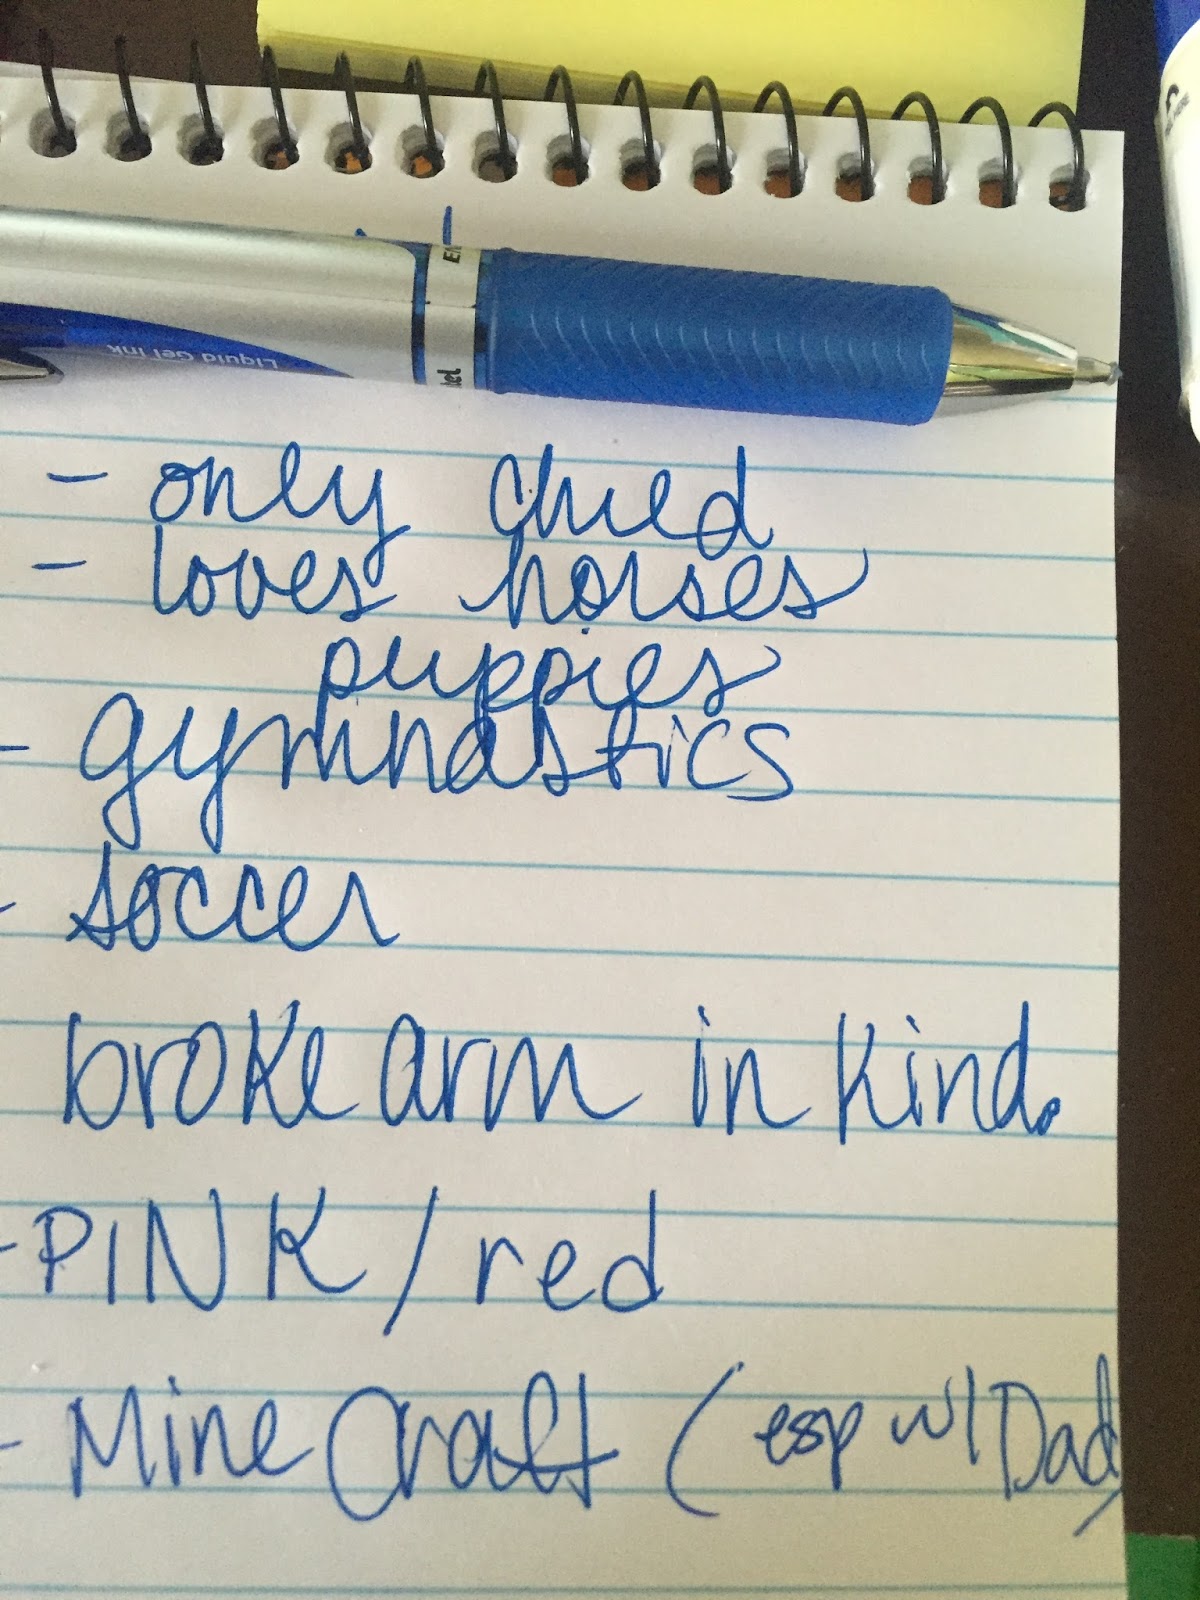 Liquid Gel Ink
- only child
- loves horses
puppies
- gymnastics
- soccer
broke arm in kind.
- PINK / red
- Mine Craft (esp w/ Dad)